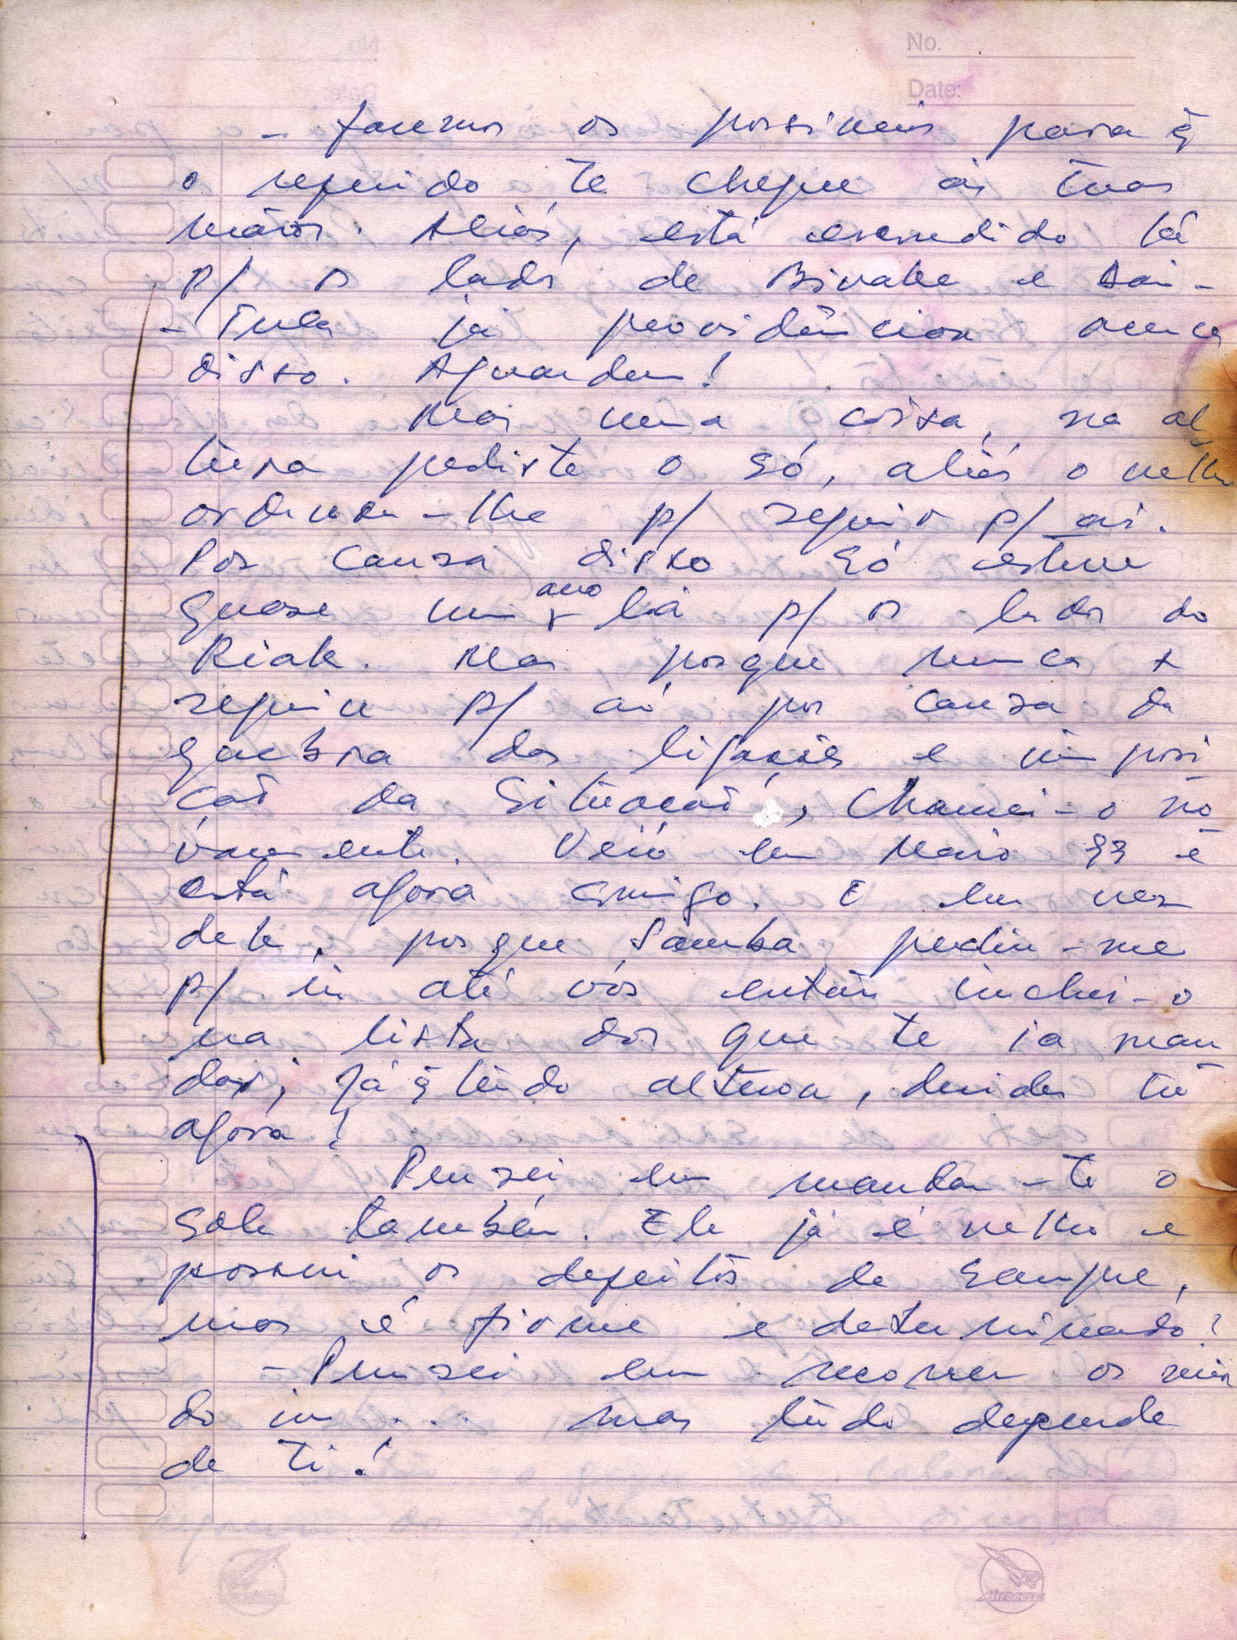 No.
Date:
- faremos os possiveis para q̃
o referido te chegue às tuas
mãos. Aliás, está escondido lá
p/ os lados de e
já providências acerca
disso. Aguardem!
Mas uma coisa, na al
tura pediste o Só, aliás o velho
ordenou-lhe p/ seguir p/ aí.
Por causa disso Só esteve
quase um ano lá p/ os lados do
Kiak. Mas porque nunca +
seguiu p/ aí por causa da
quebra das ligações e imposi
ção da Situação, chamei-o no
vamente. Veio em Maio 99 e
está agora comigo. E em vez
dele, porque Samba pediu-me
p/ ir até vós então inclui-o
na lista dos que te ia man
dar; já q̃ tudo altera, decides tu
agora!
Pensei em mandar-te o
Gole também. Ele já é velho e
possui os defeitos de sempre,
mas é firme e determinado!
- Pensei em
do ir ... mas tudo depende
de ti!